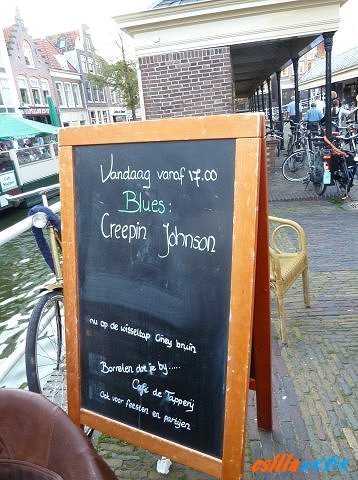 Vandaag vanaf 17.00
Blues:
Creepin Johnson
nu op de wisseltap Ciney bruin
Borrelen doe je by.....
Café de Tapperij
Ook voor feesten en partijen